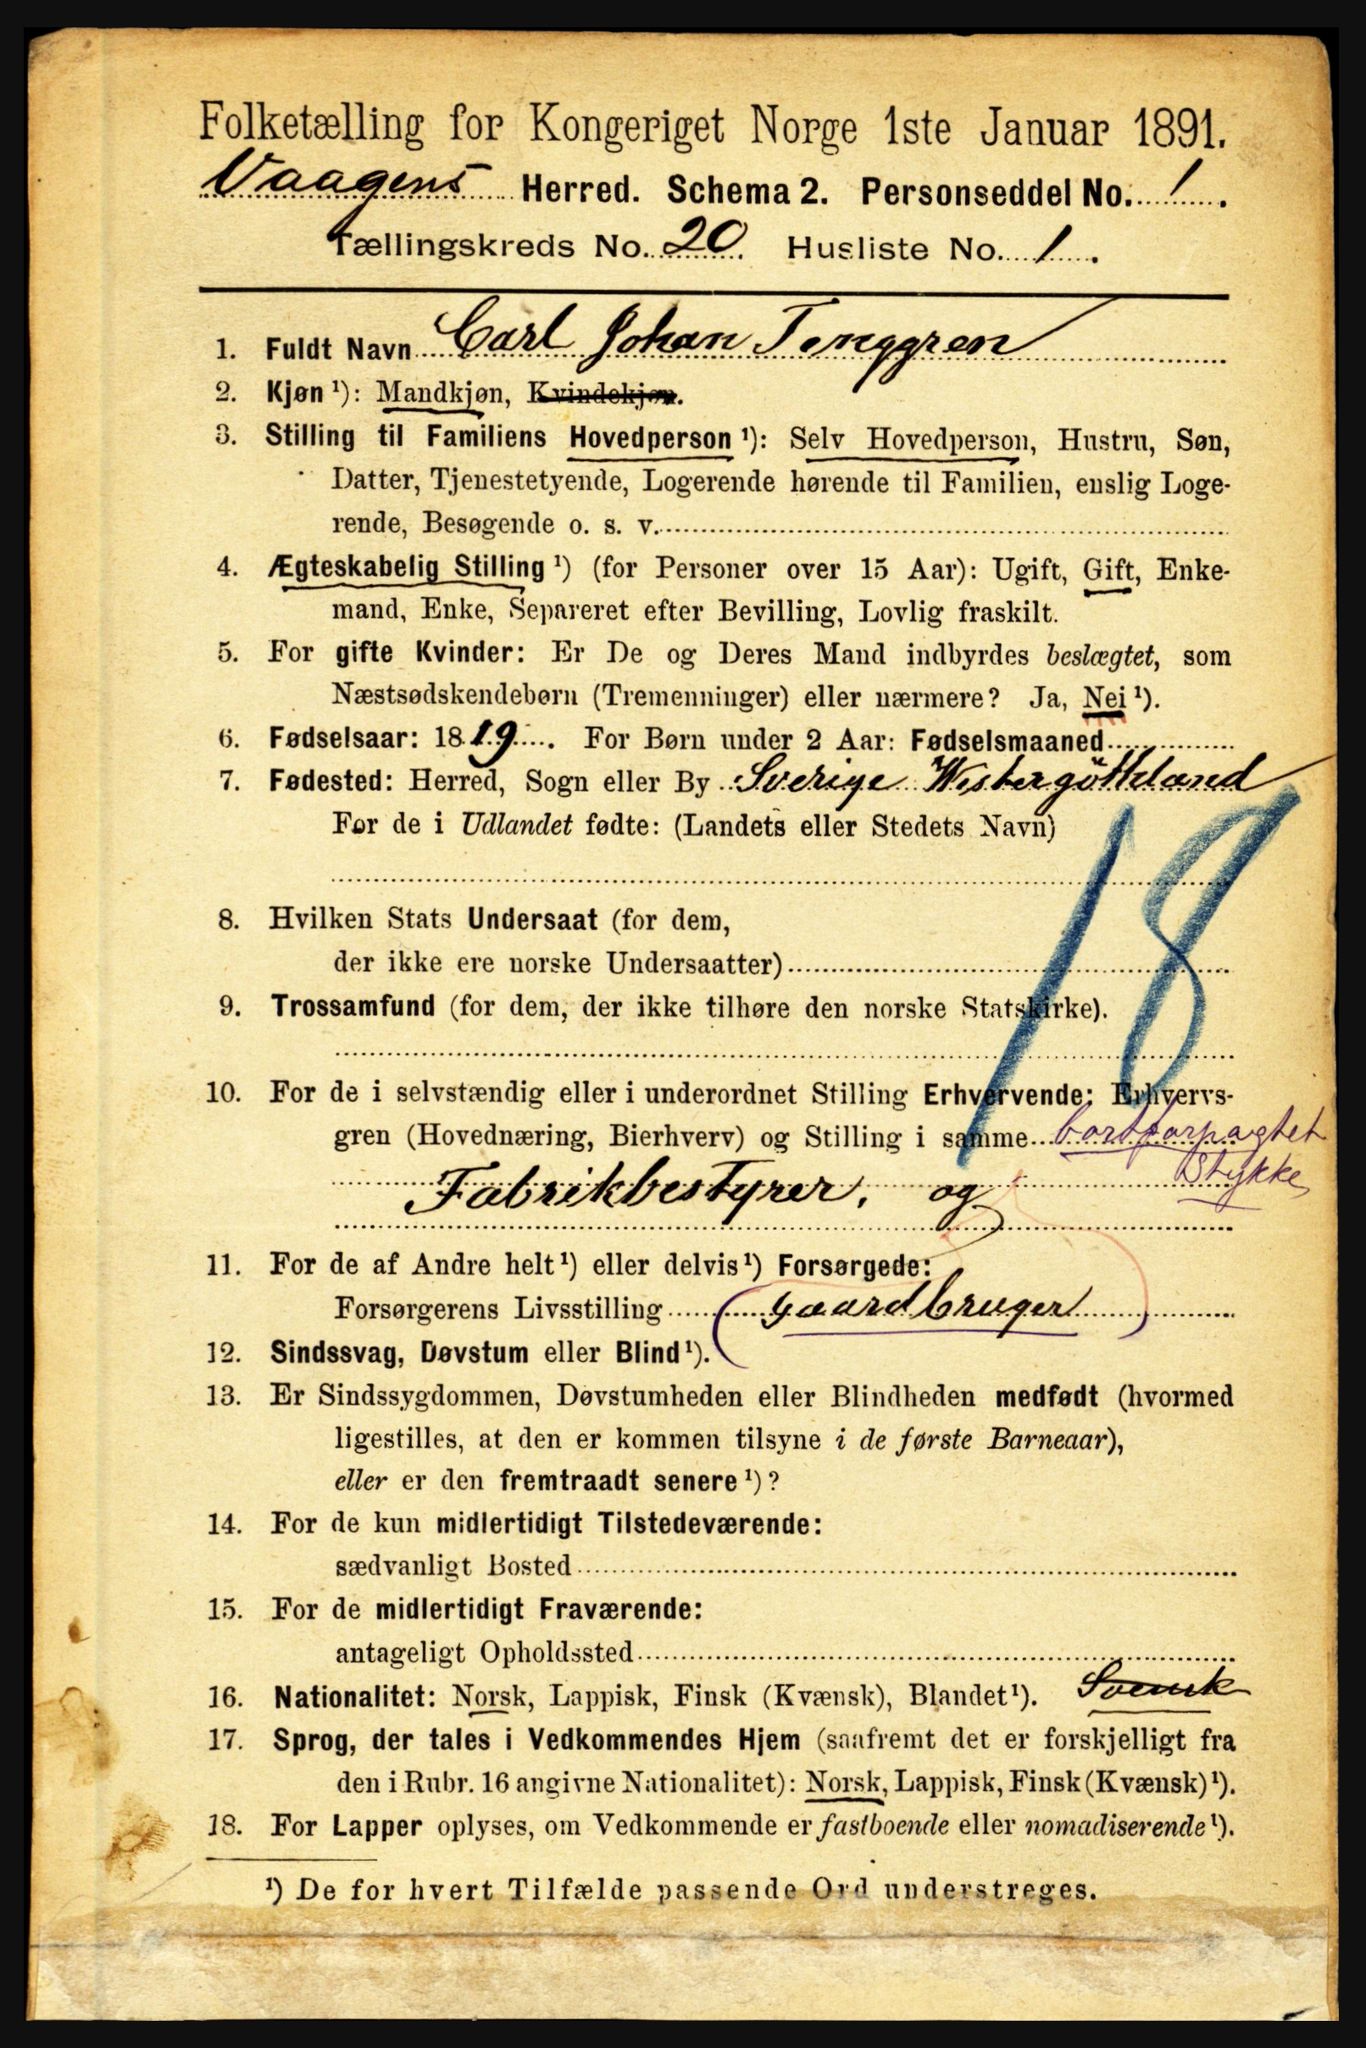 Folketælling for Kongeriget Norge 1ste Januar 1891.
Vaagens Herred. Schema 2. Personseddel No. 1.
Tællingskreds No. 20. Husliste No. 1.
1. Fuldt Navn Carl Johan Tenggren
2. Kjøn ¹): Mandkjøn, Kvindekjøn.
3. Stilling til Familiens Hovedperson ¹): Selv Hovedperson, Hustru, Søn,
Datter, Tjenestetyende, Logerende hørende til Familien, enslig Loge-
rende, Besøgende o. s. v.
4. Ægteskabelig Stilling ¹) (for Personer over 15 Aar): Ugift, Gift, Enke-
mand, Enke, Separeret efter Bevilling, Lovlig fraskilt.
5. For gifte Kvinder: Er De og Deres Mand indbyrdes beslægtet, som
Næstsødskendebørn (Tremenninger) eller nærmere? Ja, Nei ¹).
6. Fødselsaar: 1819. For Børn under 2 Aar: Fødselsmaaned
7. Fødested: Herred, Sogn eller By Sverige Westergöthland
For de i Udlandet fødte: (Landets eller Stedets Navn)
18
8. Hvilken Stats Undersaat (for dem,
der ikke ere norske Undersaatter)
9. Trossamfund (for dem, der ikke tilhøre den norske Statskirke).
10. For de i selvstændig eller i underordnet Stilling Erhvervende: Erhvervs-
gren (Hovednæring, Bierhverv) og Stilling i samme bortforpagtet
Stykke
Fabrikbestyrer, og
11. For de af Andre helt ¹) eller delvis ¹) Forsørgede:
Forsørgerens Livsstilling (gaardbruger)
12. Sindssvag, Døvstum eller Blind ¹).
13. Er Sindssygdommen, Døvstumheden eller Blindheden medfødt (hvormed
ligestilles, at den er kommen tilsyne i de første Barneaar),
eller er den fremtraadt senere ¹)?
14. For de kun midlertidigt Tilstedeværende:
sædvanligt Bosted
15. For de midlertidigt Fraværende:
antageligt Opholdssted
16. Nationalitet: Norsk, Lappisk, Finsk (Kvænsk), Blandet ¹). Svensk
17. Sprog, der tales i Vedkommendes Hjem (saafremt det er forskjelligt fra
den i Rubr. 16 angivne Nationalitet): Norsk, Lappisk, Finsk (Kvænsk) ¹).
18. For Lapper oplyses, om Vedkommende er fastboende eller nomadiserende ¹).
¹) De for hvert Tilfælde passende Ord understreges.